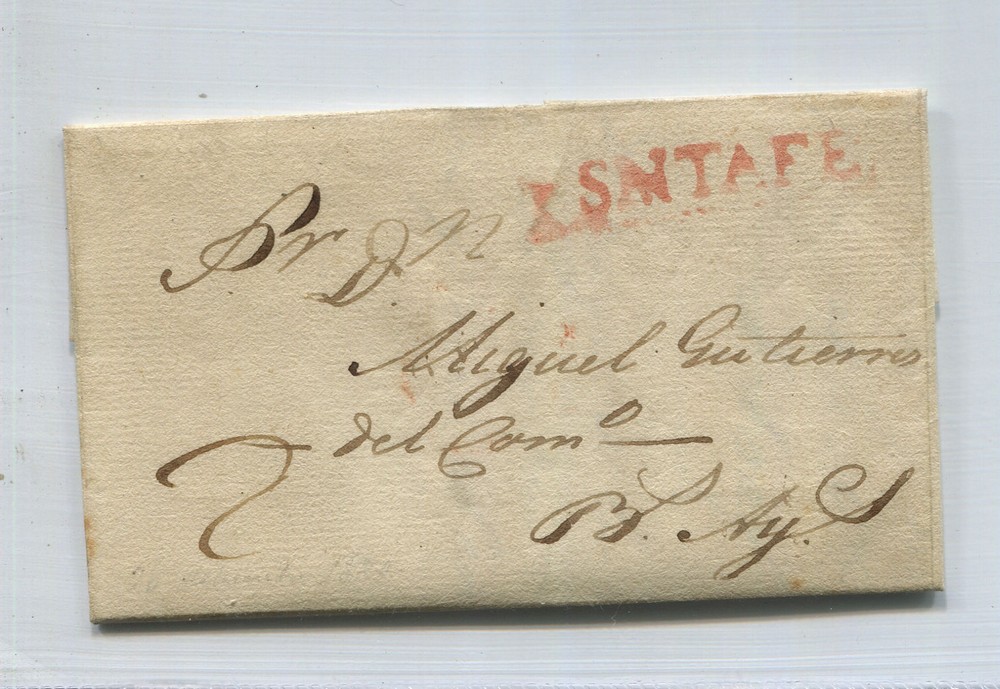 SNTAFE.
Sr D.n
Miguel Gutierres
del Com.o
B.s Ay.s